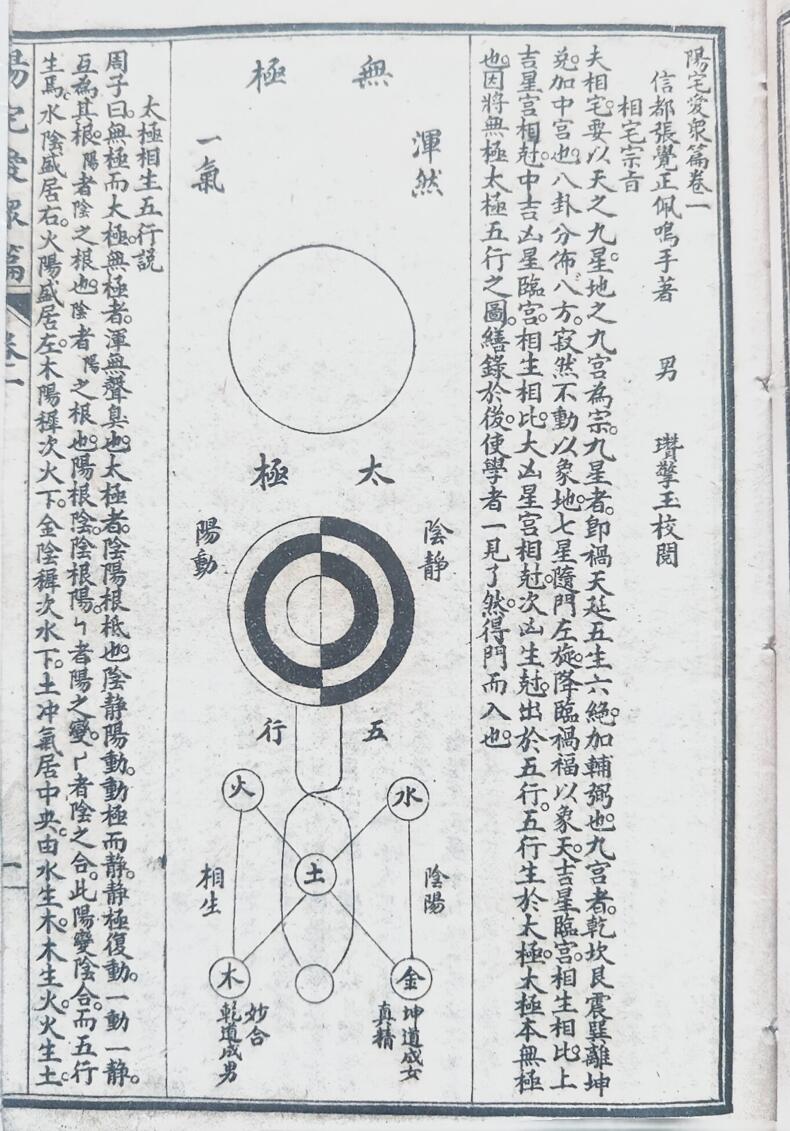 陽宅愛衆篇卷一
信都張覺正佩鳴手著　男　瓚擎玉校閱
相宅宗旨
夫相宅要以天之九星。地之九宮為宗。九星者。卽禍天延五生六絶。加輔弼也。九宮者。乾坎艮震巽離坤
兌。加中宮也。八卦分佈八方。寂然不動以象地。七星隨門左旋。降臨禍福以象天。吉星臨宮。相生相比。上
吉星宮相尅。中吉凶星臨宮。相生相比。大凶星宮相尅。次凶生尅。出於五行。五行生於太極。太極本無極
也。因將無極太極五行之圖。繕錄於後。使學者一見了然。得門而入也。
無極
渾然
一氣
太極
陰靜
陽動
五行
水
火
土
陰陽
相生
金
木
坤道成女
真精
妙合
乾道成男
太極相生五行説
周子曰。無極而太極。無極者。渾無聲臭也。太極者。陰陽根柢也。陰静陽動。動極而静。静極復動。一動一静。
互為其根。陽者陰之根也。陰者陽之根也。陽根陰。陰根陽。ㄣ者陽之變。ㄏ者陰之合。此陽變陰合。而五行
生焉。水陰盛居右。火陽盛居左。木陽穉次火下。金陰穉次水下。土冲氣居中央。由水生木。木生火。火生土。
陽宅愛衆篇　卷一　一